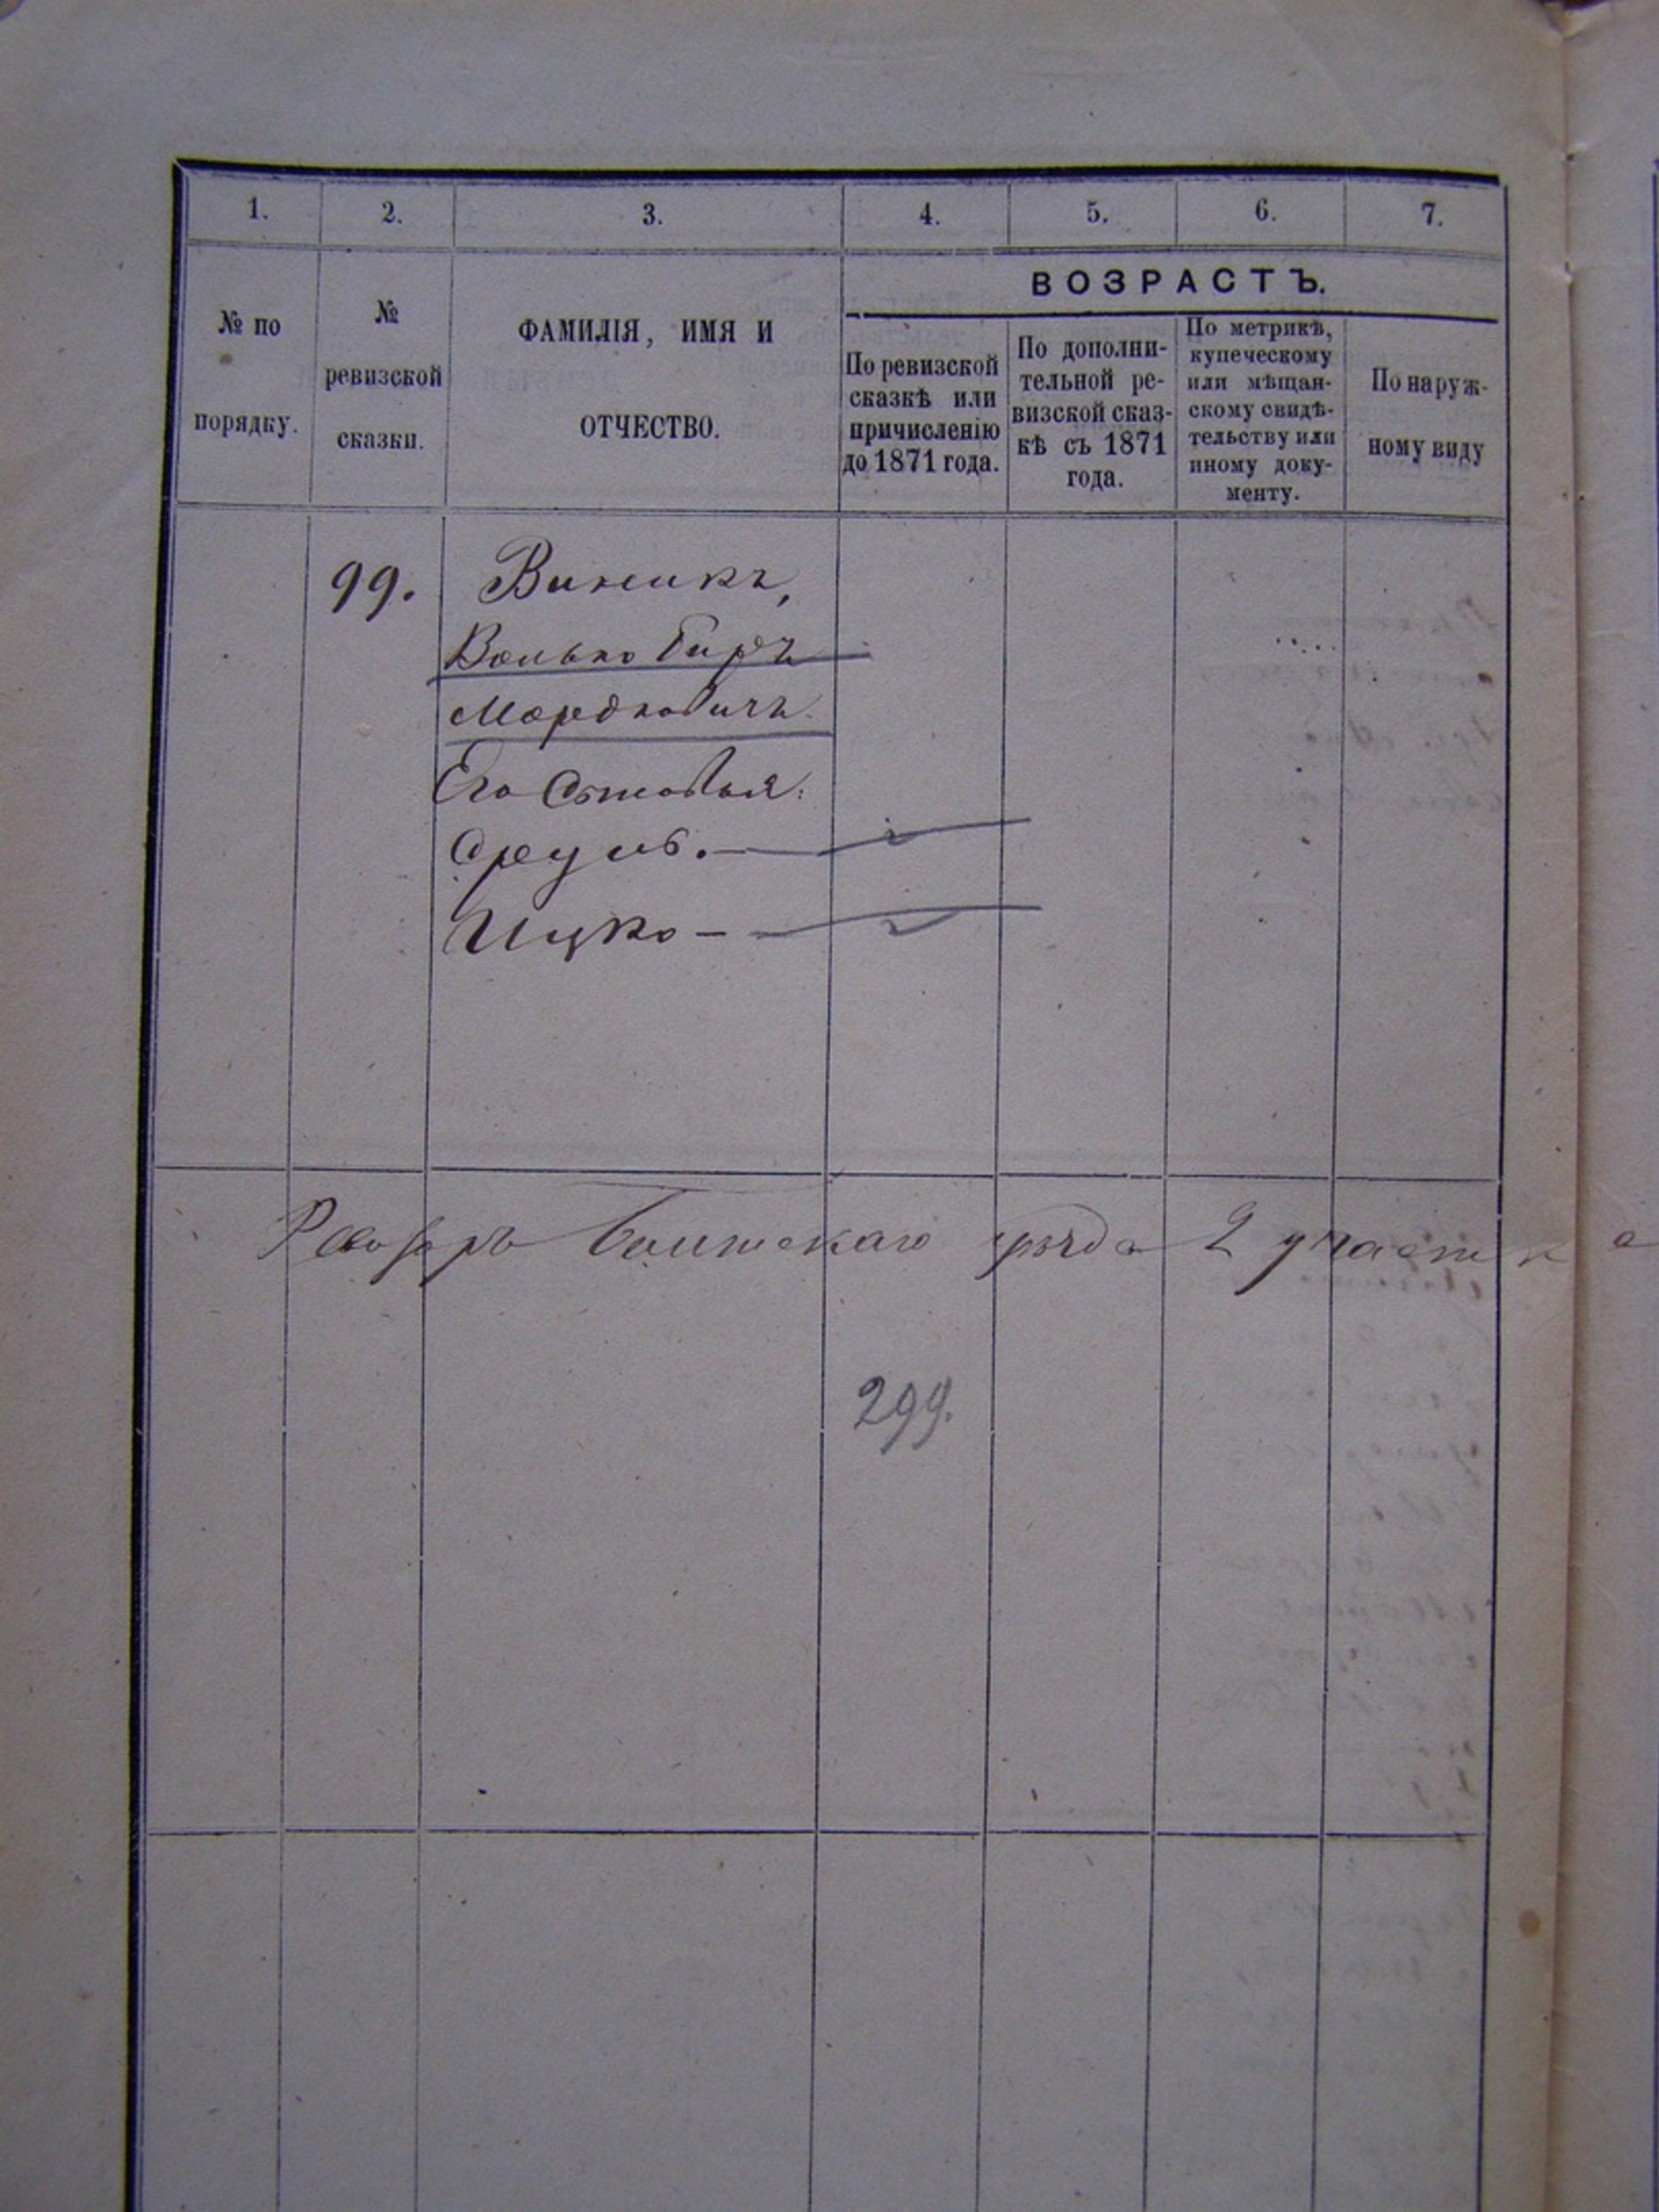 1. 2. 3. 4. 5. 6. 7.
№ по порядку.
№ ревизской сказки.
ФАМИЛІЯ, ИМЯ И
ОТЧЕСТВО.
ВОЗРАСТЪ.
По ревизской
сказкѣ или
причисленію
до 1871 года.
По дополни-
тельной ре-
визской сказ-
кѣ съ 1871
года.
По метрикѣ,
купеческому
или мѣщан-
скому свидѣ-
тельству или
иному доку-
менту.
По наруж-
ному виду
99. Винникъ,
Волько Биръ
Мордковичъ.
Его Сыновья:
Срулъ. —
Ицко —
уѣзда 2 участка
299.